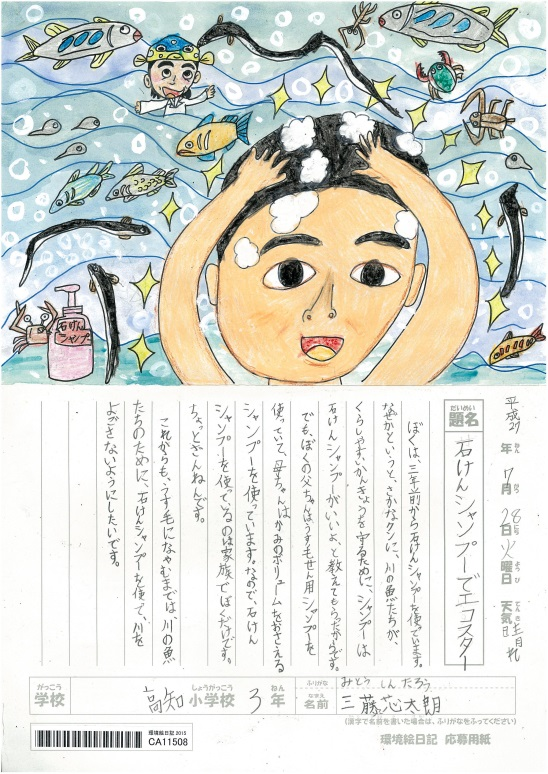 石けん
シャンプー
平成27年7月28日火曜日 天気 晴れ
だいめい
題名
石けんシャンプーでエコスター
ぼくは、三年前から石けんシャンプーを使っています。
なぜかというと、さかなクンに、川の魚たちが、
くらしやすいかんきょうを守るために、シャンプーは
石けんシャンプーがいいよ、と教えてもらったからです。
でも、ぼくの父ちゃんは、うす毛せん用シャンプーを
使っていて、母ちゃんはかみのボリュームをおさえる
シャンプーを使っています。なので、石けん
シャンプーを使っているのは家族でぼくだけです。
ちょっとざんねんです。
これからも、うす毛になやむまでは川の魚
たちのために、石けんシャンプーを使って、川を
よごさないようにしたいです。
がっこう しょうがっこう ねん
学校 高知 小学校 3年
ふりがな みとう しんたろう
なまえ
名前 三藤芯太朗
(漢字で名前を書いた場合は、ふりがなをふってください)
環境絵日記 2015
CA11508
環境絵日記 応募用紙